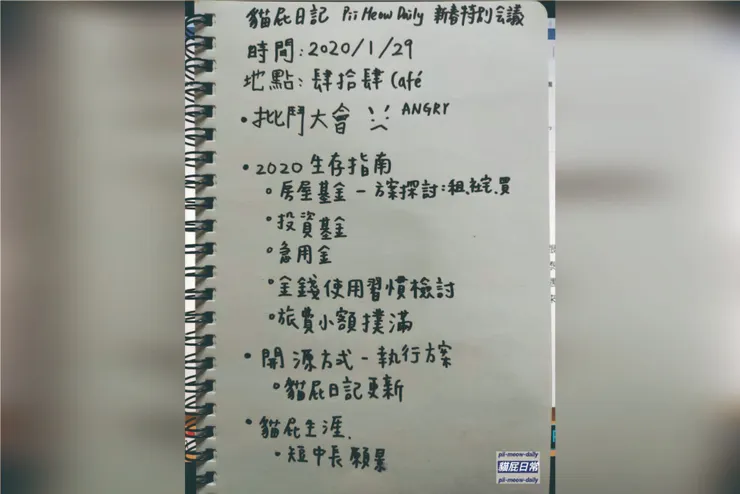 貓屁日記 Pii Meow Daily 新春特別会議
時間:2020/1/29
地點:肆拾肆 Café
•批鬥大會 ANGRY
•2020生存指南
◦房屋基金-方案探討:租、社宅、買
◦投資基金
◦急用金
◦金錢使用習慣檢討
◦旅費小額撲滿
•開源方式-執行方案
◦貓屁日記更新
•貓屁生涯、
•短中長願景
pii-meow-daily
貓屁日常
pii-meow-daily